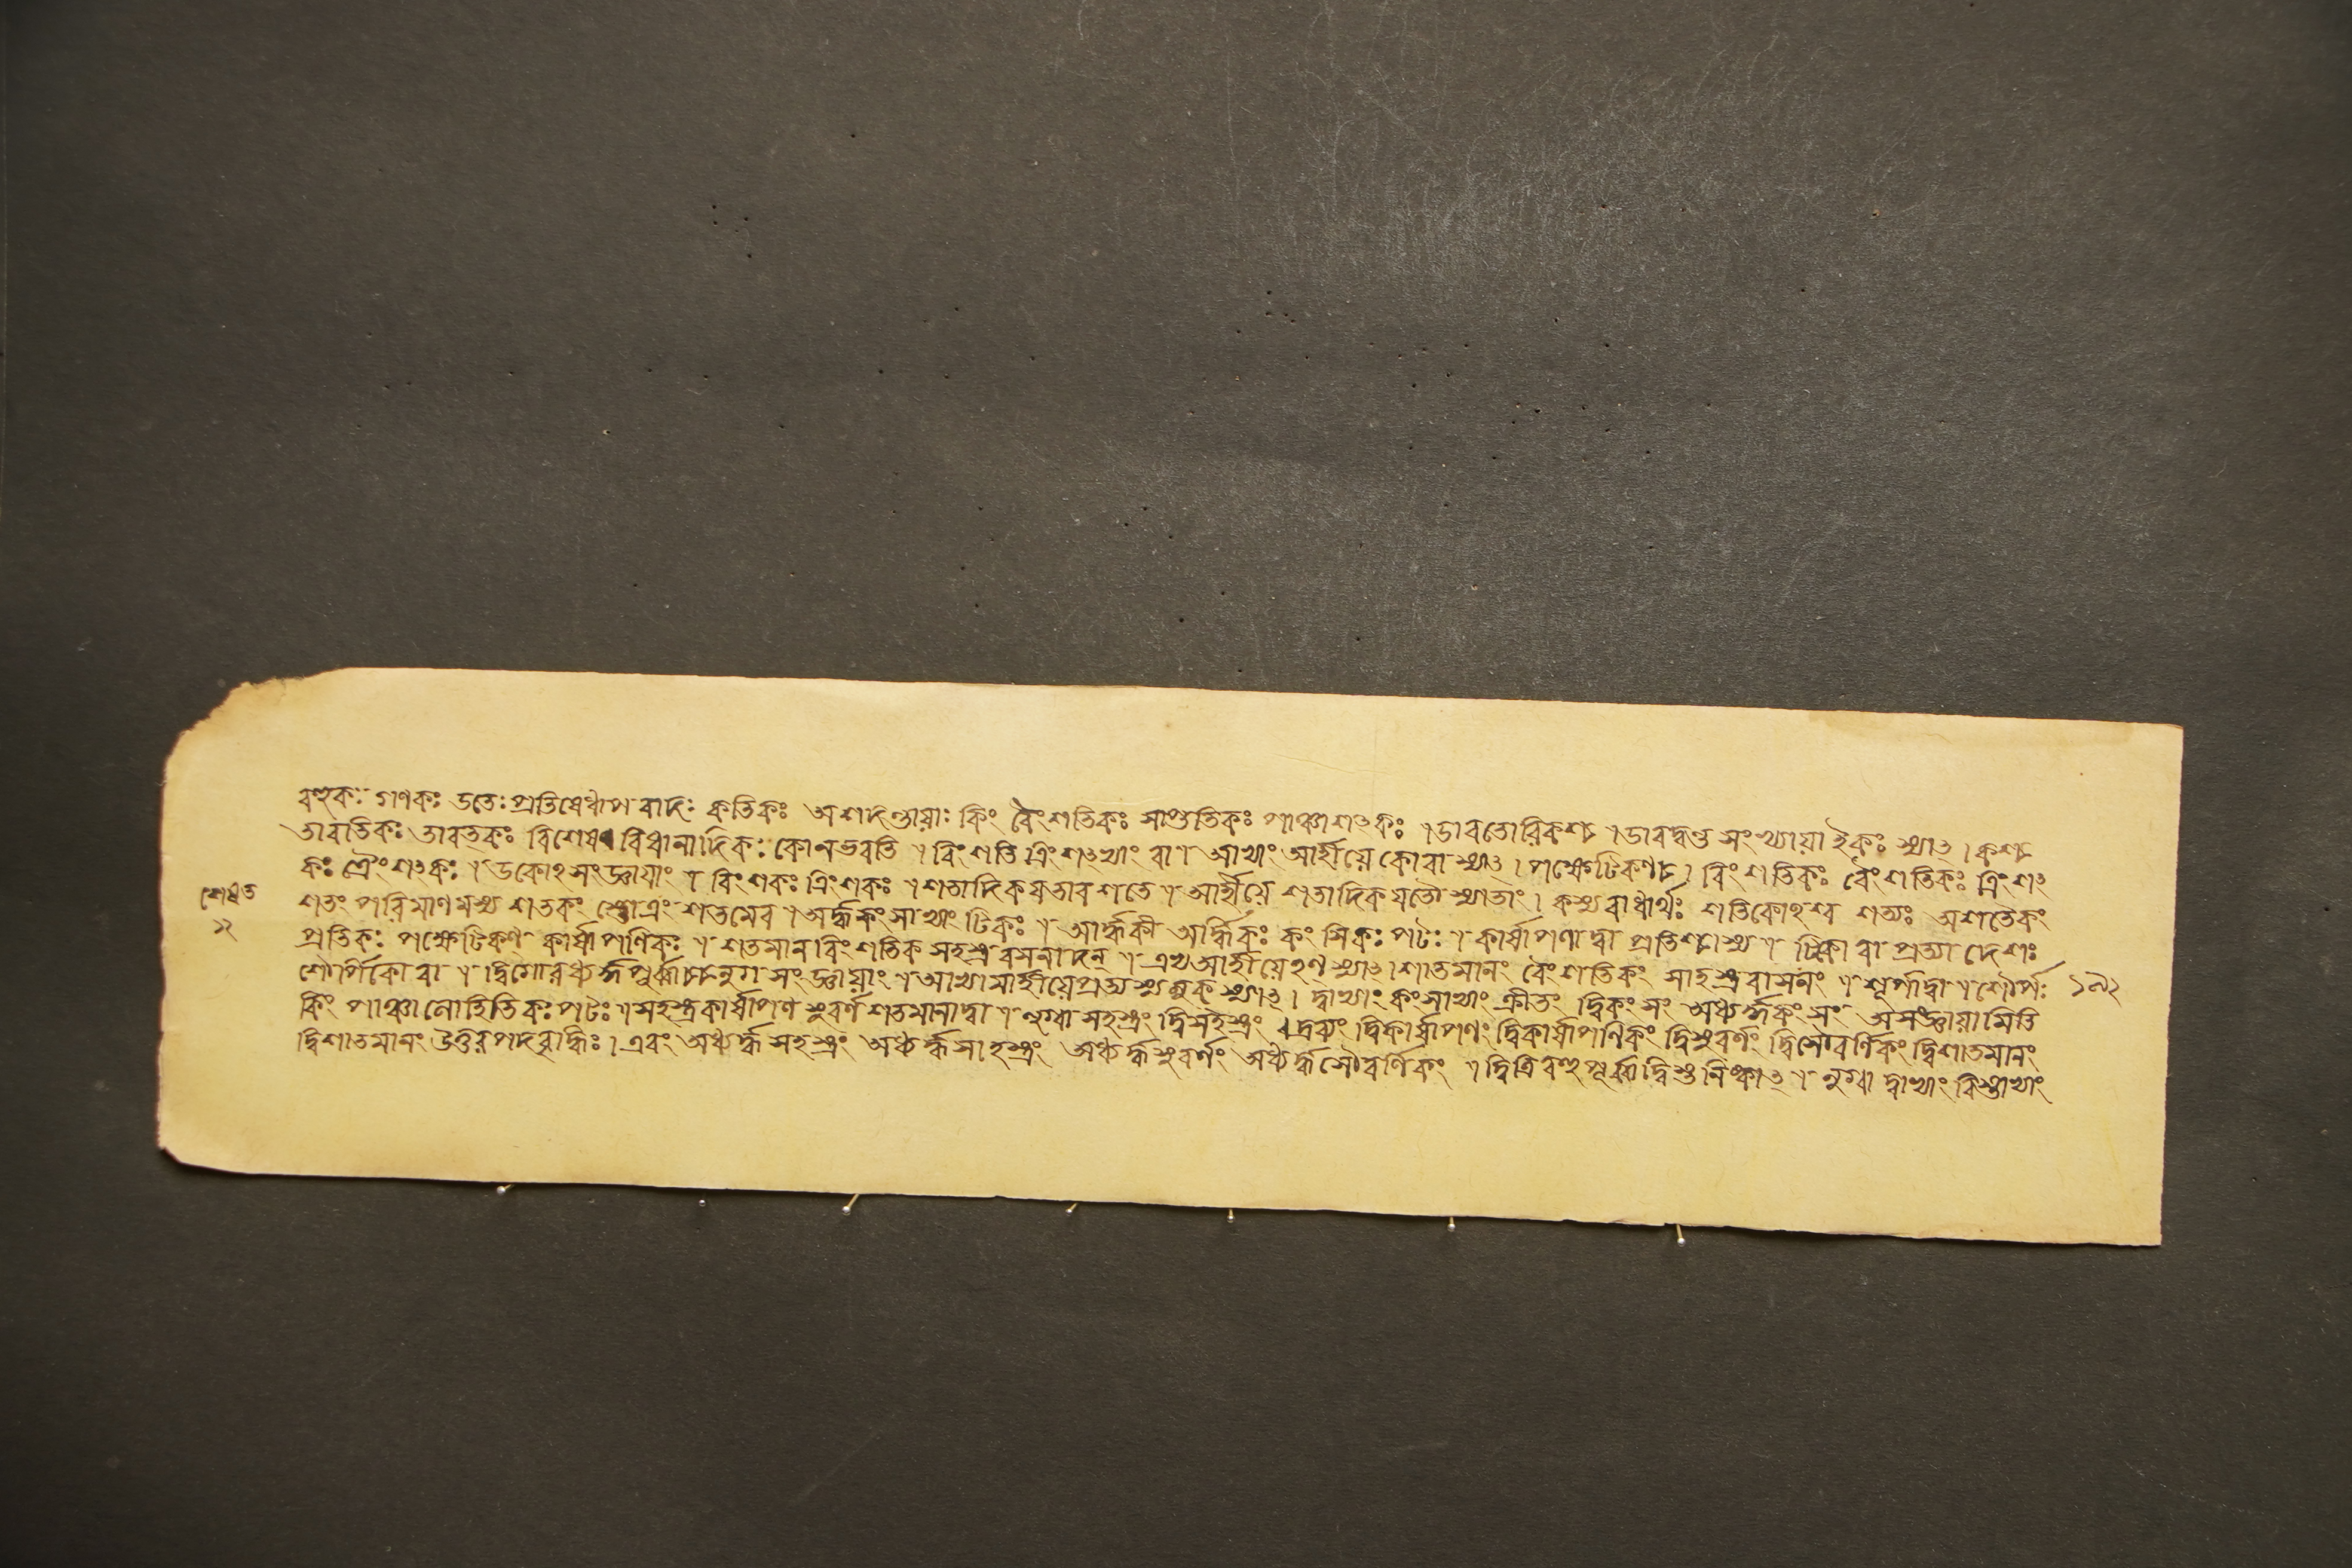 বহুকঃ গণকঃ ডতেঃ প্রতিষেধাপবাদঃ কতিকঃ অশদন্তায়াঃ কিং বৈংশতিকঃ সাপ্ততিকঃ পাঞ্চাশৎকঃ । ডাবতোরিকশ্চ । ডাবদ্বণ্ড সংখ্যায়া ইকঃ স্যাৎ । কশ্চ
তাবতিকঃ তাবত্কঃ বিশেষবিধানাদিকঃ কোনভবতি । বিংশতি ত্রিংশৎভ্যাং বা । আভ্যাং আর্হীয়ে কোবা স্যাৎ । পক্ষেটিকণ্চ । বিংশতিকঃ বৈংশতিকঃ ত্রিংশৎ
কঃ ত্রৈংশৎকঃ । ডকোঽসংজ্ঞায়াং । বিংশকঃ ত্রিংশকঃ । শতাদিকযতাবশতে । আর্হীয়ে শতাদিকযতৌ স্যাতাং । কস্যবাধার্থঃ শতিকোঽশ্ব শত্যঃ অশতৈকং
শতং পরিমাণমস্য শতকং স্তোত্রং শতমেব । অর্দ্ধকংসাভ্যাং টিকঃ । আর্দ্ধিকী আর্দ্ধিকঃ কংসিকঃ পটঃ । কার্ষাপণাদ্বা প্রতিশ্চাস্য । টিকো বা প্রত্যাদেশঃ
প্রতিকঃ পক্ষেটিকণ্ কার্ষাপণিকঃ । শতমান বিংশতিক সহস্র বসনাদন্ । এভ্য আর্হীয়েঽণ্ স্যাৎ । শাতমানং বৈংশতিকং সাহস্র বাসনং । শূর্পাদ্বা । শৌর্পঃ
শৌর্পিকো বা । দ্বিগোরধ্যর্দ্ধপূর্ব্বাচ্চলুগ সংজ্ঞায়াং । আভ্যামার্হীয়েপ্রত্যস্যলুক্ স্যাৎ । দ্বাভ্যাং কংসাভ্যাং ক্রীতং দ্বিকংসং অধ্যর্দ্ধকংসং অসংজ্ঞায়ামিতি
কিং পাঞ্চলোহিতিকঃ পটঃ । সহস্রকার্ষাপণ সুবর্ণ শতমানাদ্বা । লুগ্বা সহস্রং দ্বিসহস্রং । দ্রব্যং দ্বিকার্ষাপণং দ্বিকার্ষাপণিকং দ্বিসুবর্ণং দ্বিসৌবর্ণিকং দ্বিশতমানং
দ্বিশাতমানং উত্তরপদবৃদ্ধিঃ । এবং অধ্যর্দ্ধসহস্রং অধ্যর্দ্ধসাহস্রং অধ্যর্দ্ধসুবর্ণং অধ্যর্দ্ধসৌবর্ণিকং । দ্বিত্রিবহুপূর্ব্বাদ্বিস্তনিষ্কাৎ । লুগ্বা দ্বাভ্যাং বিস্তাভ্যাং
শেষত
১২
১৯২